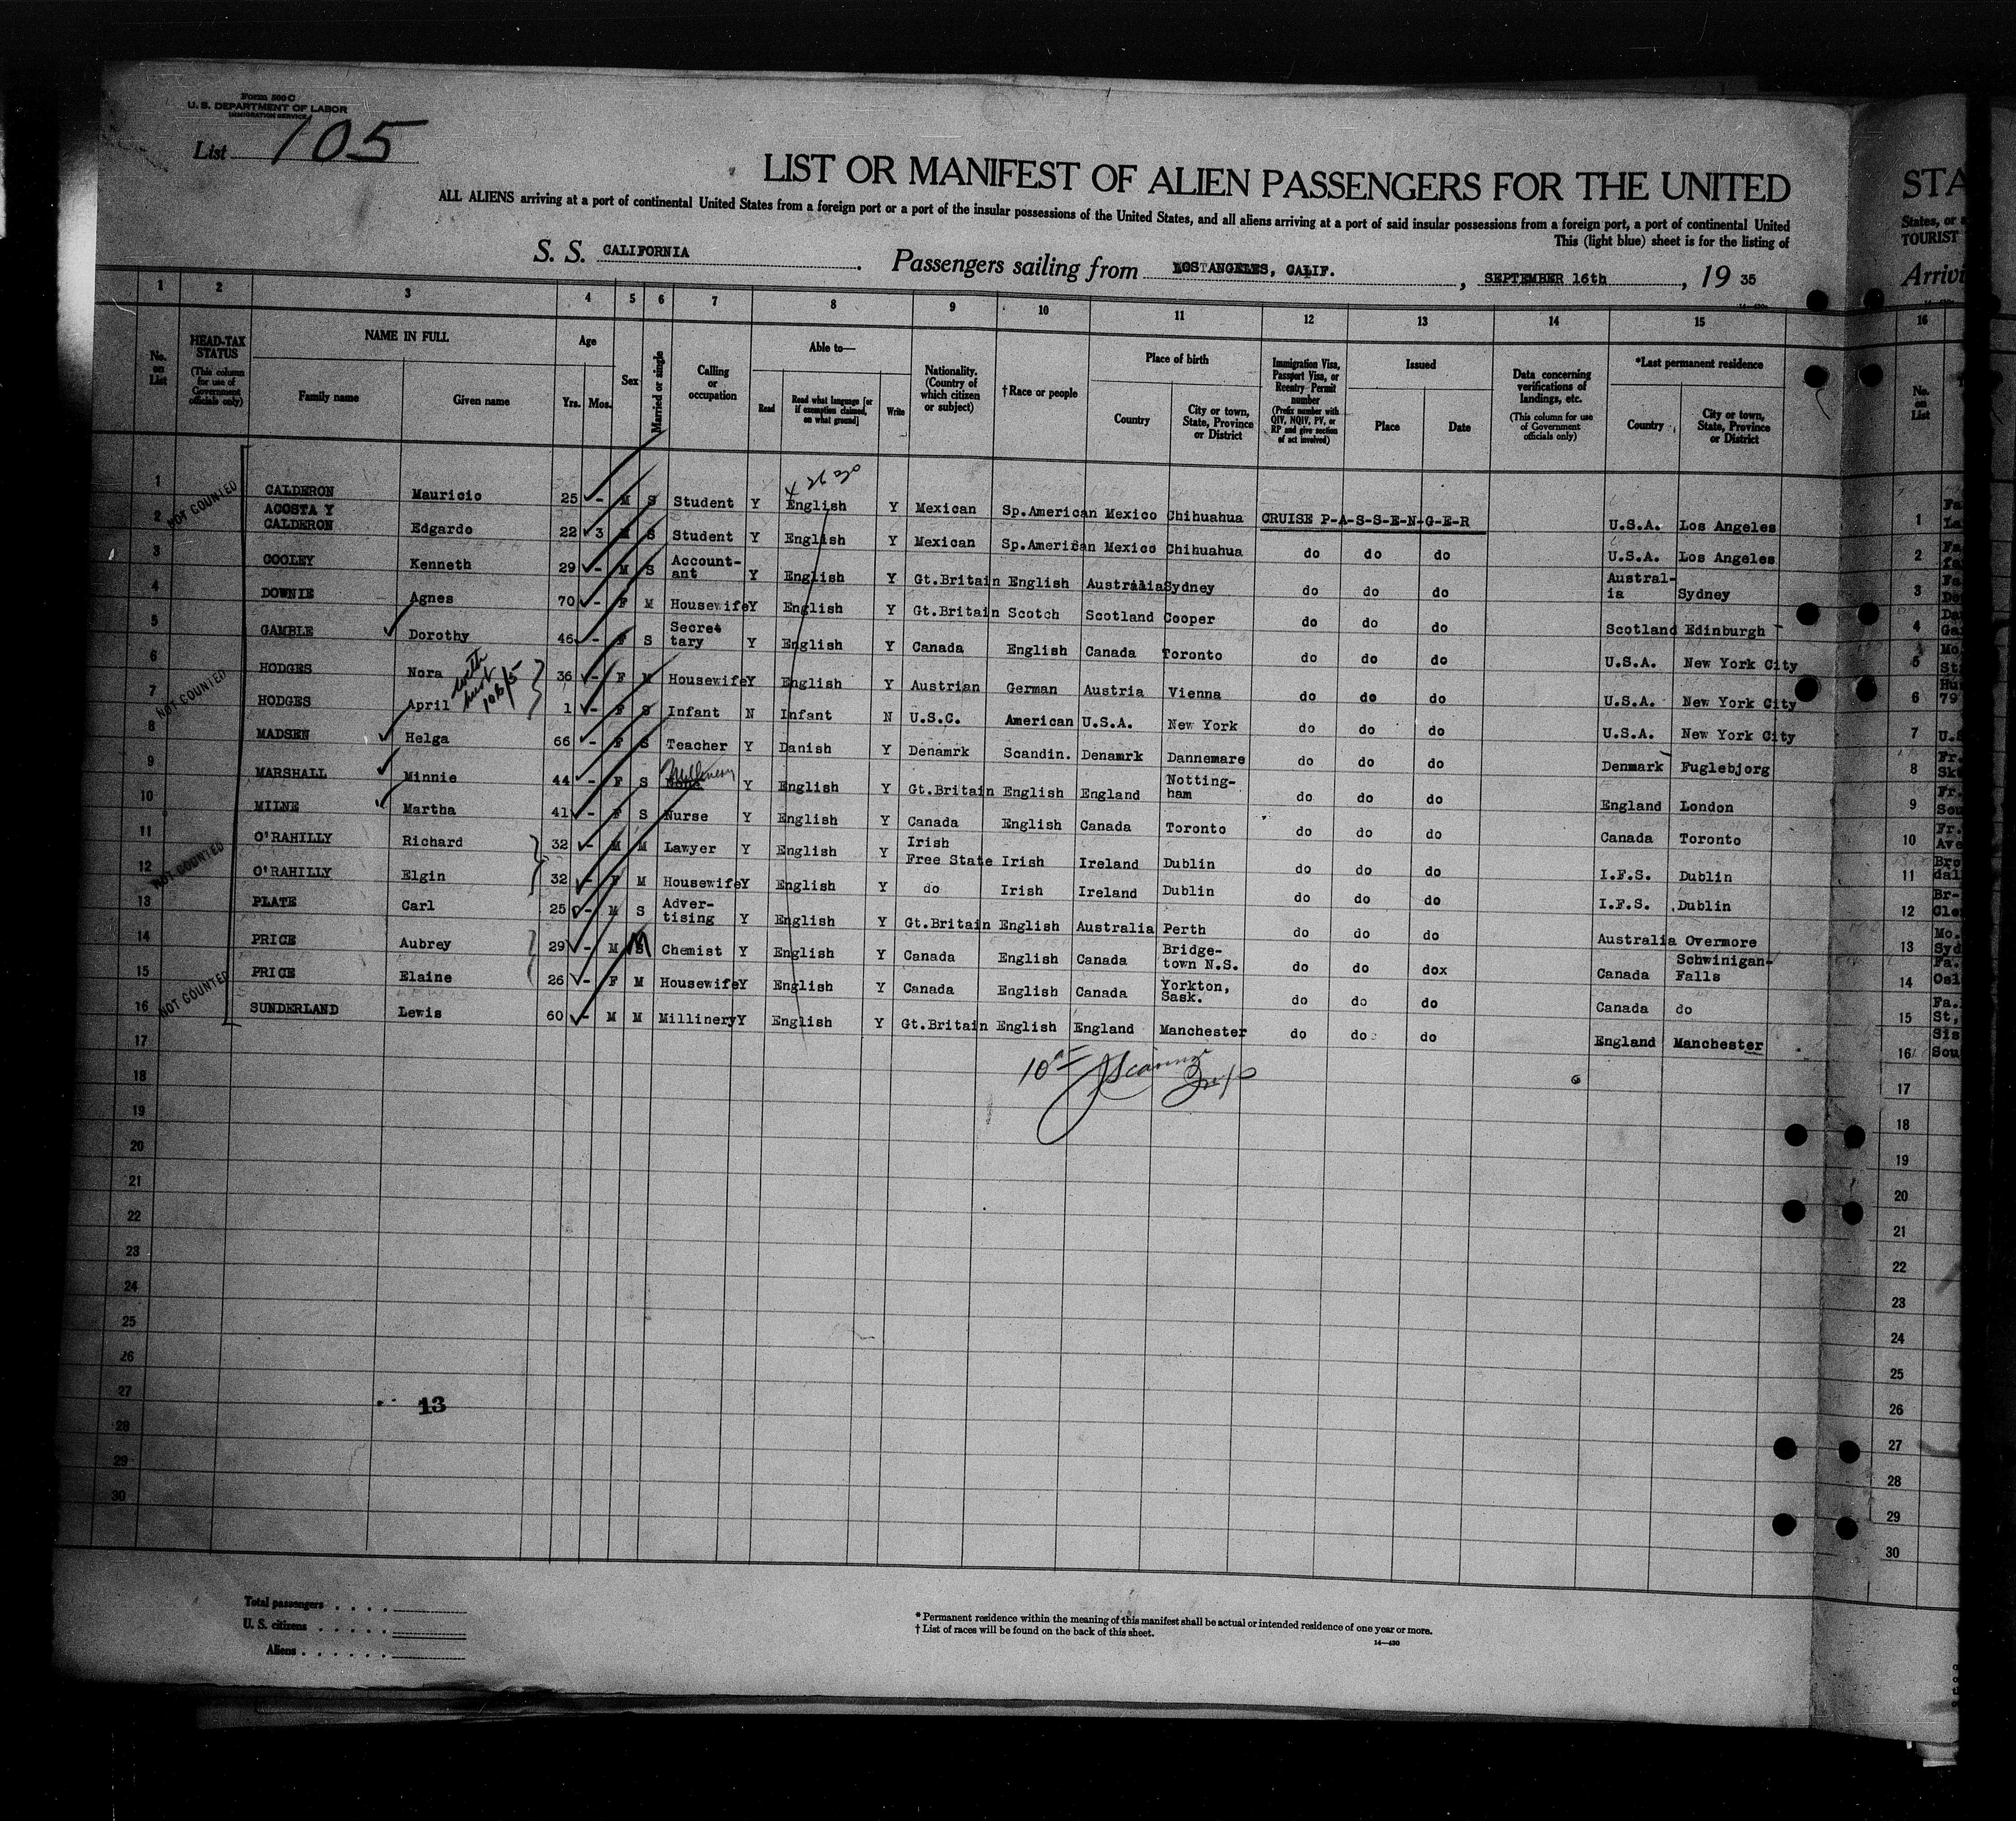 Form 500 C
U. S. DEPARTMENT OF LABOR
IMMIGRATION SERVICE
List 105
LIST OR MANIFEST OF ALIEN PASSENGERS FOR THE UNITED
STA
ALL ALIENS arriving at a port of continental United States from a foreign port or a port of the insular possessions of the United States, and all aliens arriving at a port of said insular possessions from a foreign port, a port of continental United
States, or a
This (light blue) sheet is for the listing of
TOURIST
S. S. CALIFORNIA. Passengers sailing from LOS ANGELES, CALIF., SEPTEMBER 16th, 19 35
Arrivi
1 2 3 4 5 6 7 8 9 10 11 12 13 14 15 16
No. on List
HEAD-TAX STATUS (This column for use of Government officials only)
NAME IN FULL
Family name Given name
Age Yrs. Mos.
Sex
Married or single
Calling or occupation
Able to—
Read Read what language [or if exemption claimed, on what ground] Write
Nationality. (Country of which citizen or subject)
† Race or people
Place of birth
Country City or town, State, Province or District
Immigration Visa, Passport Visa, or Reentry Permit number (Prefix number with QIV, NQIV, PV, or RP and give section of act involved)
Issued
Place Date
Data concerning verifications of landings, etc. (This column for use of Government officials only)
*Last permanent residence
Country City or town, State, Province or District
No. on List
NOT COUNTED
NOT COUNTED
NOT COUNTED
NOT COUNTED
1 CALDERON Mauricio 25 - M S Student Y English Y Mexican Sp.American Mexico Chihuahua CRUISE P-A-S-S-E-N-G-E-R U.S.A. Los Angeles 1
2 ACOSTA Y CALDERON Edgardo 22 3 M S Student Y English Y Mexican Sp.American Mexico Chihuahua do do do U.S.A. Los Angeles 2
3 COOLEY Kenneth 29 - M S Account-ant Y English Y Gt.Britain English Australia Sydney do do do Austral-ia Sydney 3
4 DOWNIE Agnes 70 - F M Housewife Y English Y Gt.Britain Scotch Scotland Cooper do do do Scotland Edinburgh 4
5 GAMBLE Dorothy 46 - F S Secre tary Y English Y Canada English Canada Toronto do do do U.S.A. New York City 5
6 HODGES Nora 36 - F M Housewife Y English Y Austrian German Austria Vienna do do do U.S.A. New York City 6
with
7 HODGES April 1 - F S Infant N Infant N U.S.C. American U.S.A. New York do do do U.S.A. New York City 7
8 MADSEN Helga 66 - F S Teacher Y Danish Y Denamrk Scandin. Denamrk Dannemare do do do Denmark Fuglebjorg 8
9 MARSHALL Minnie 44 - F S None Millinery Y English Y Gt.Britain English England Notting-ham do do do England London 9
10 MILNE Martha 41 - F S Nurse Y English Y Canada English Canada Toronto do do do Canada Toronto 10
11 O'RAHILLY Richard 32 - M M Lawyer Y English Y Irish Free State Irish Ireland Dublin do do do I.F.S. Dublin 11
12 O'RAHILLY Elgin 32 - F M Housewife Y English Y do Irish Ireland Dublin do do do I.F.S. Dublin 12
13 PLATE Carl 25 - M S Adver-tising Y English Y Gt.Britain English Australia Perth do do do Australia Overmore 13
14 PRICE Aubrey 29 - M M Chemist Y English Y Canada English Canada Bridge-town N.S. do do dox Canada Schwinigan-Falls 14
15 PRICE Elaine 26 - F M Housewife Y English Y Canada English Canada Yorkton, Sask. do do do Canada do 15
16 SUNDERLAND Lewis 60 - M M Millinery Y English Y Gt.Britain English England Manchester do do do England Manchester 16
17 17
18 18
19 19
20 20
21 21
22 22
23 23
24 24
25 25
26 26
27 27
13
28 28
29 29
30 30
Total passengers
U. S. citizens
Aliens
* Permanent residence within the meaning of this manifest shall be actual or intended residence of one year or more.
† List of races will be found on the back of this sheet.
14—430